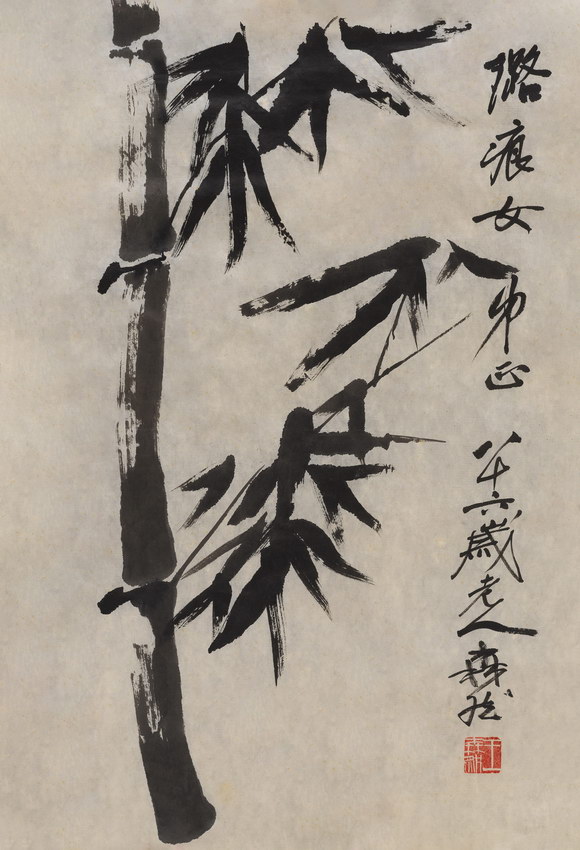 璐痕女弟正 八十六歲老人森然